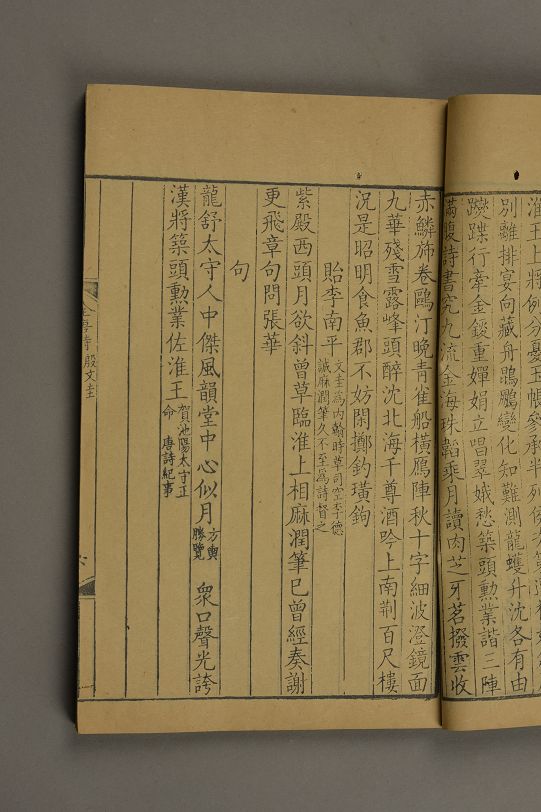 淮王上將例分憂玉帳參承半列侯
別離排宴向藏舟鵾鵬變化知難測龍蠖升沈各有由
躞蹀行牽金鏤重嬋娟立唱翠娥愁築頭勳業諧三陣
滿腹詩書究九流金海珠韜乘月讀肉芝牙茗撥雲收
赤鱗旆卷鷗汀晚青雀船橫鴈陣秋十字細波澄鏡面
九華殘雪露峰頭醉沈北海千尊酒吟上南荆百尺樓
況是昭明食魚郡不妨閑擲釣璜鉤
貽李南平
文圭爲内翰時草司空李德
誠麻潤筆久不至爲詩督之
紫殿西頭月欲斜曾草臨淮上相麻潤筆已曾經奏謝
更飛章句問張華
句
龍舒太守人中傑風韻堂中心似月
方輿
勝覽
衆口聲光誇
漢將築頭勳業佐淮王
賀池陽太守正
命 唐詩紀事
全唐詩 殷文圭